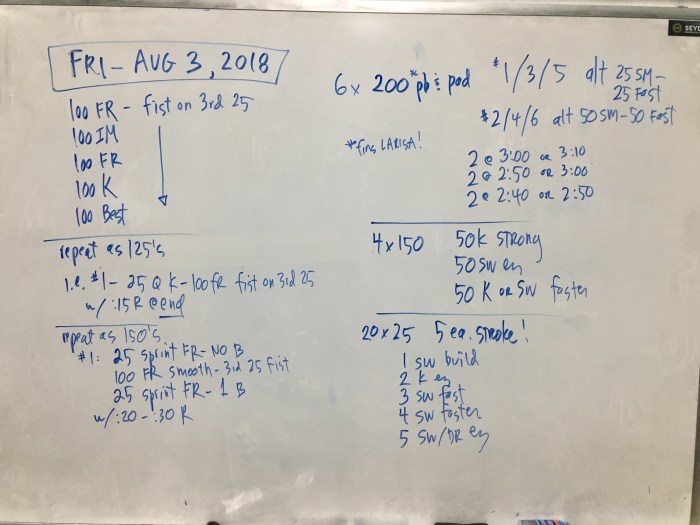 FRI - AUG 3, 2018
100 FR - fist on 3rd 25
100 IM
100 FR
100 K
100 Best
repeat as 125's
i.e. #1 - 25 Q K - 100 FR fist on 3rd 25
w/ :15 R @ end
repeat as 150's.
#1: 25 sprint FR - NO B
100 FR smooth - 3rd 25 fist
25 sprint FR - 1 B
w/ :20 - :30 R
6x 200* pb & pad
*fins LARISA!
#1/3/5 alt 25 SM -
25 Fast
#2/4/6 alt 50 SM - 50 Fast
2 @ 3:00 or 3:10
2 @ 2:50 or 3:00
2 @ 2:40 or 2:50
4 x 150 50K STRONG
50 SW ez
50 K or SW faster
20 x 25 5 ea. stroke!
1 SW build
2 K ez
3 SW fast
4 SW faster
5 SW/DR ez